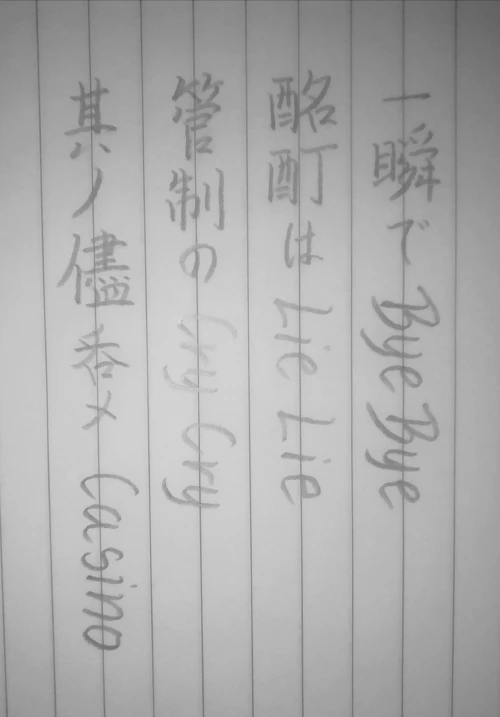 一瞬でByeBye
酩酊はLie Lie
管制のCry Cry
其ノ儘呑メ Casino